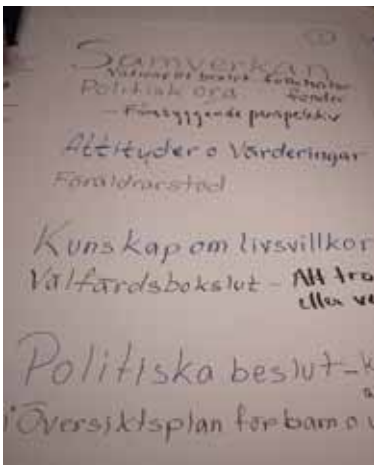 Samverkan
Politisk oro
fonder
- Förebyggande perspektiv
Attityder o Värderingar
Föräldrarstöd
Kunskap om livsvillkor
Välfärdsbokslut - Att tro
eller ve
Politiska beslut - k
a
Översiktsplan för barn o u